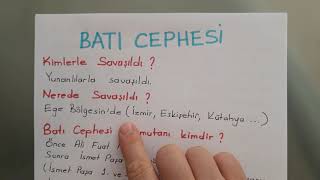 BATI CEPHESİ
Kimlerle Savaşıldı ?
Yunanlılarla savaşıldı.
Nerede Savaşıldı ?
Ege Bölgesin'de (İzmir, Eskişehir, Kütahya ...)
Batı Cephesi mutanı kimdir ?
Önce Ali Fuat
Sonra İsmet Paşa
(İsmet Paşa 1. ve